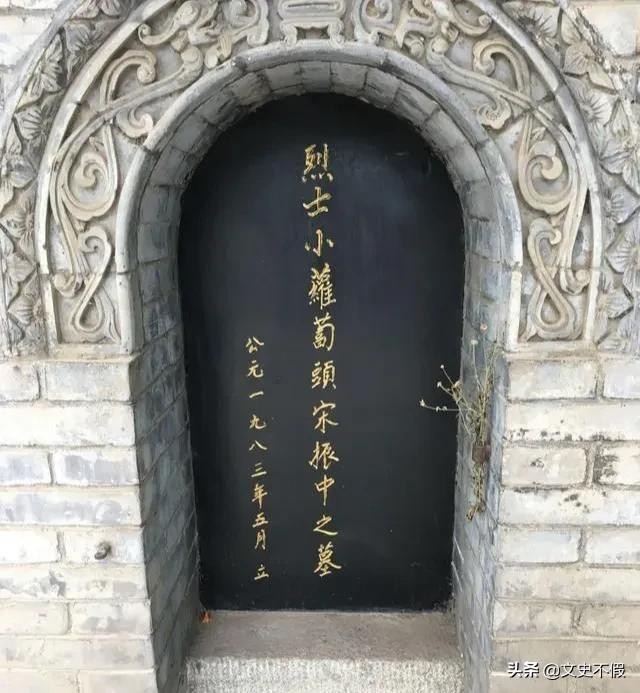 烈士小蘿蔔頭宋振中之墓
公元一九八三年五月 立
头条 @文史不假